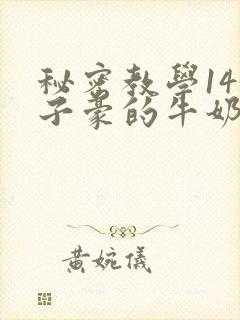 秘密教學14
子豪的牛奶
黃婉儀